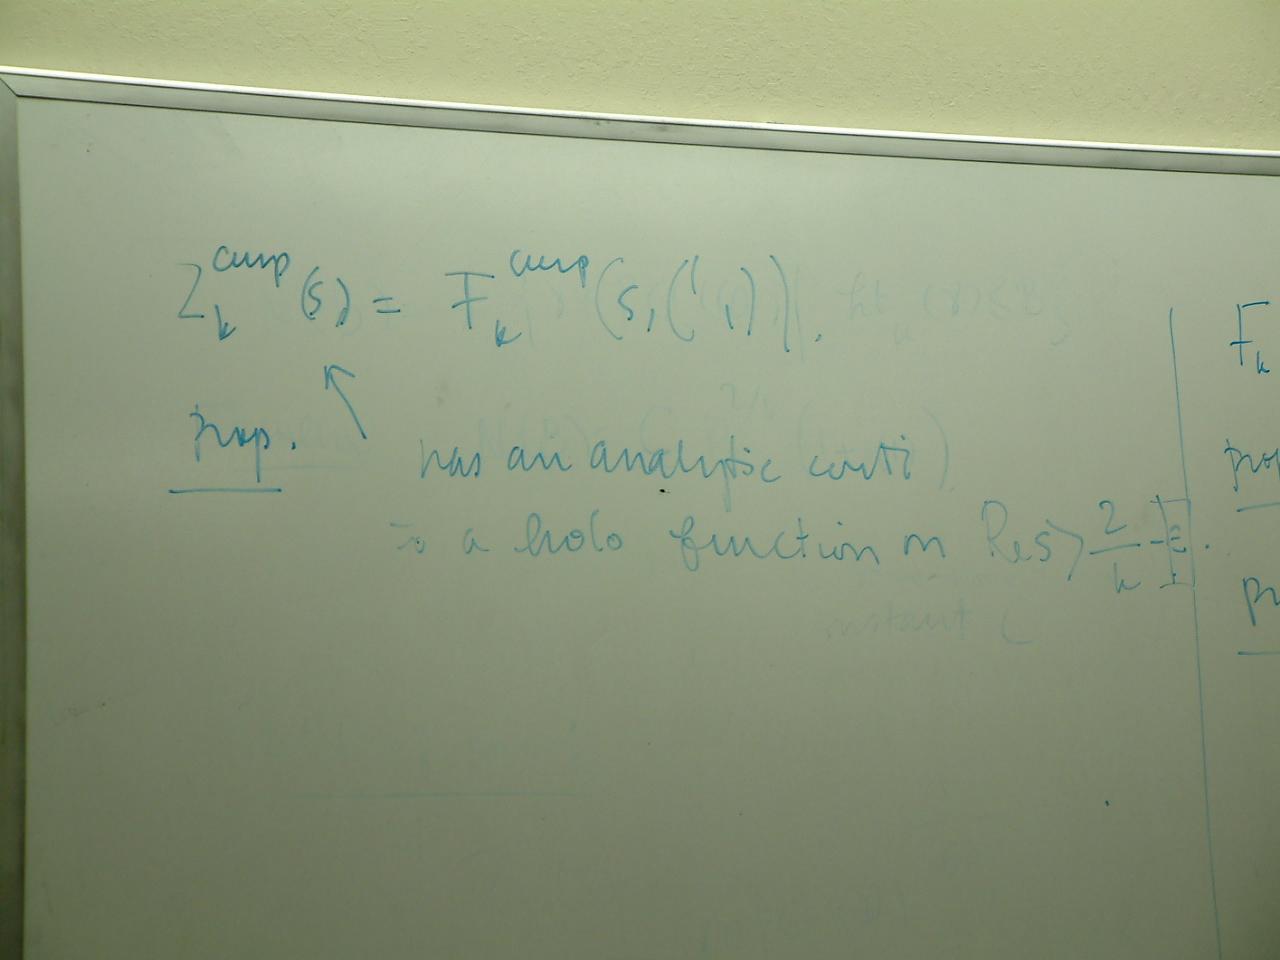 Z_k^cusp (s) = F_k^cusp (s, (1 1)).
prop. has an analytic conti)
to a holo function on Re s > 2/k - ε.
F_k